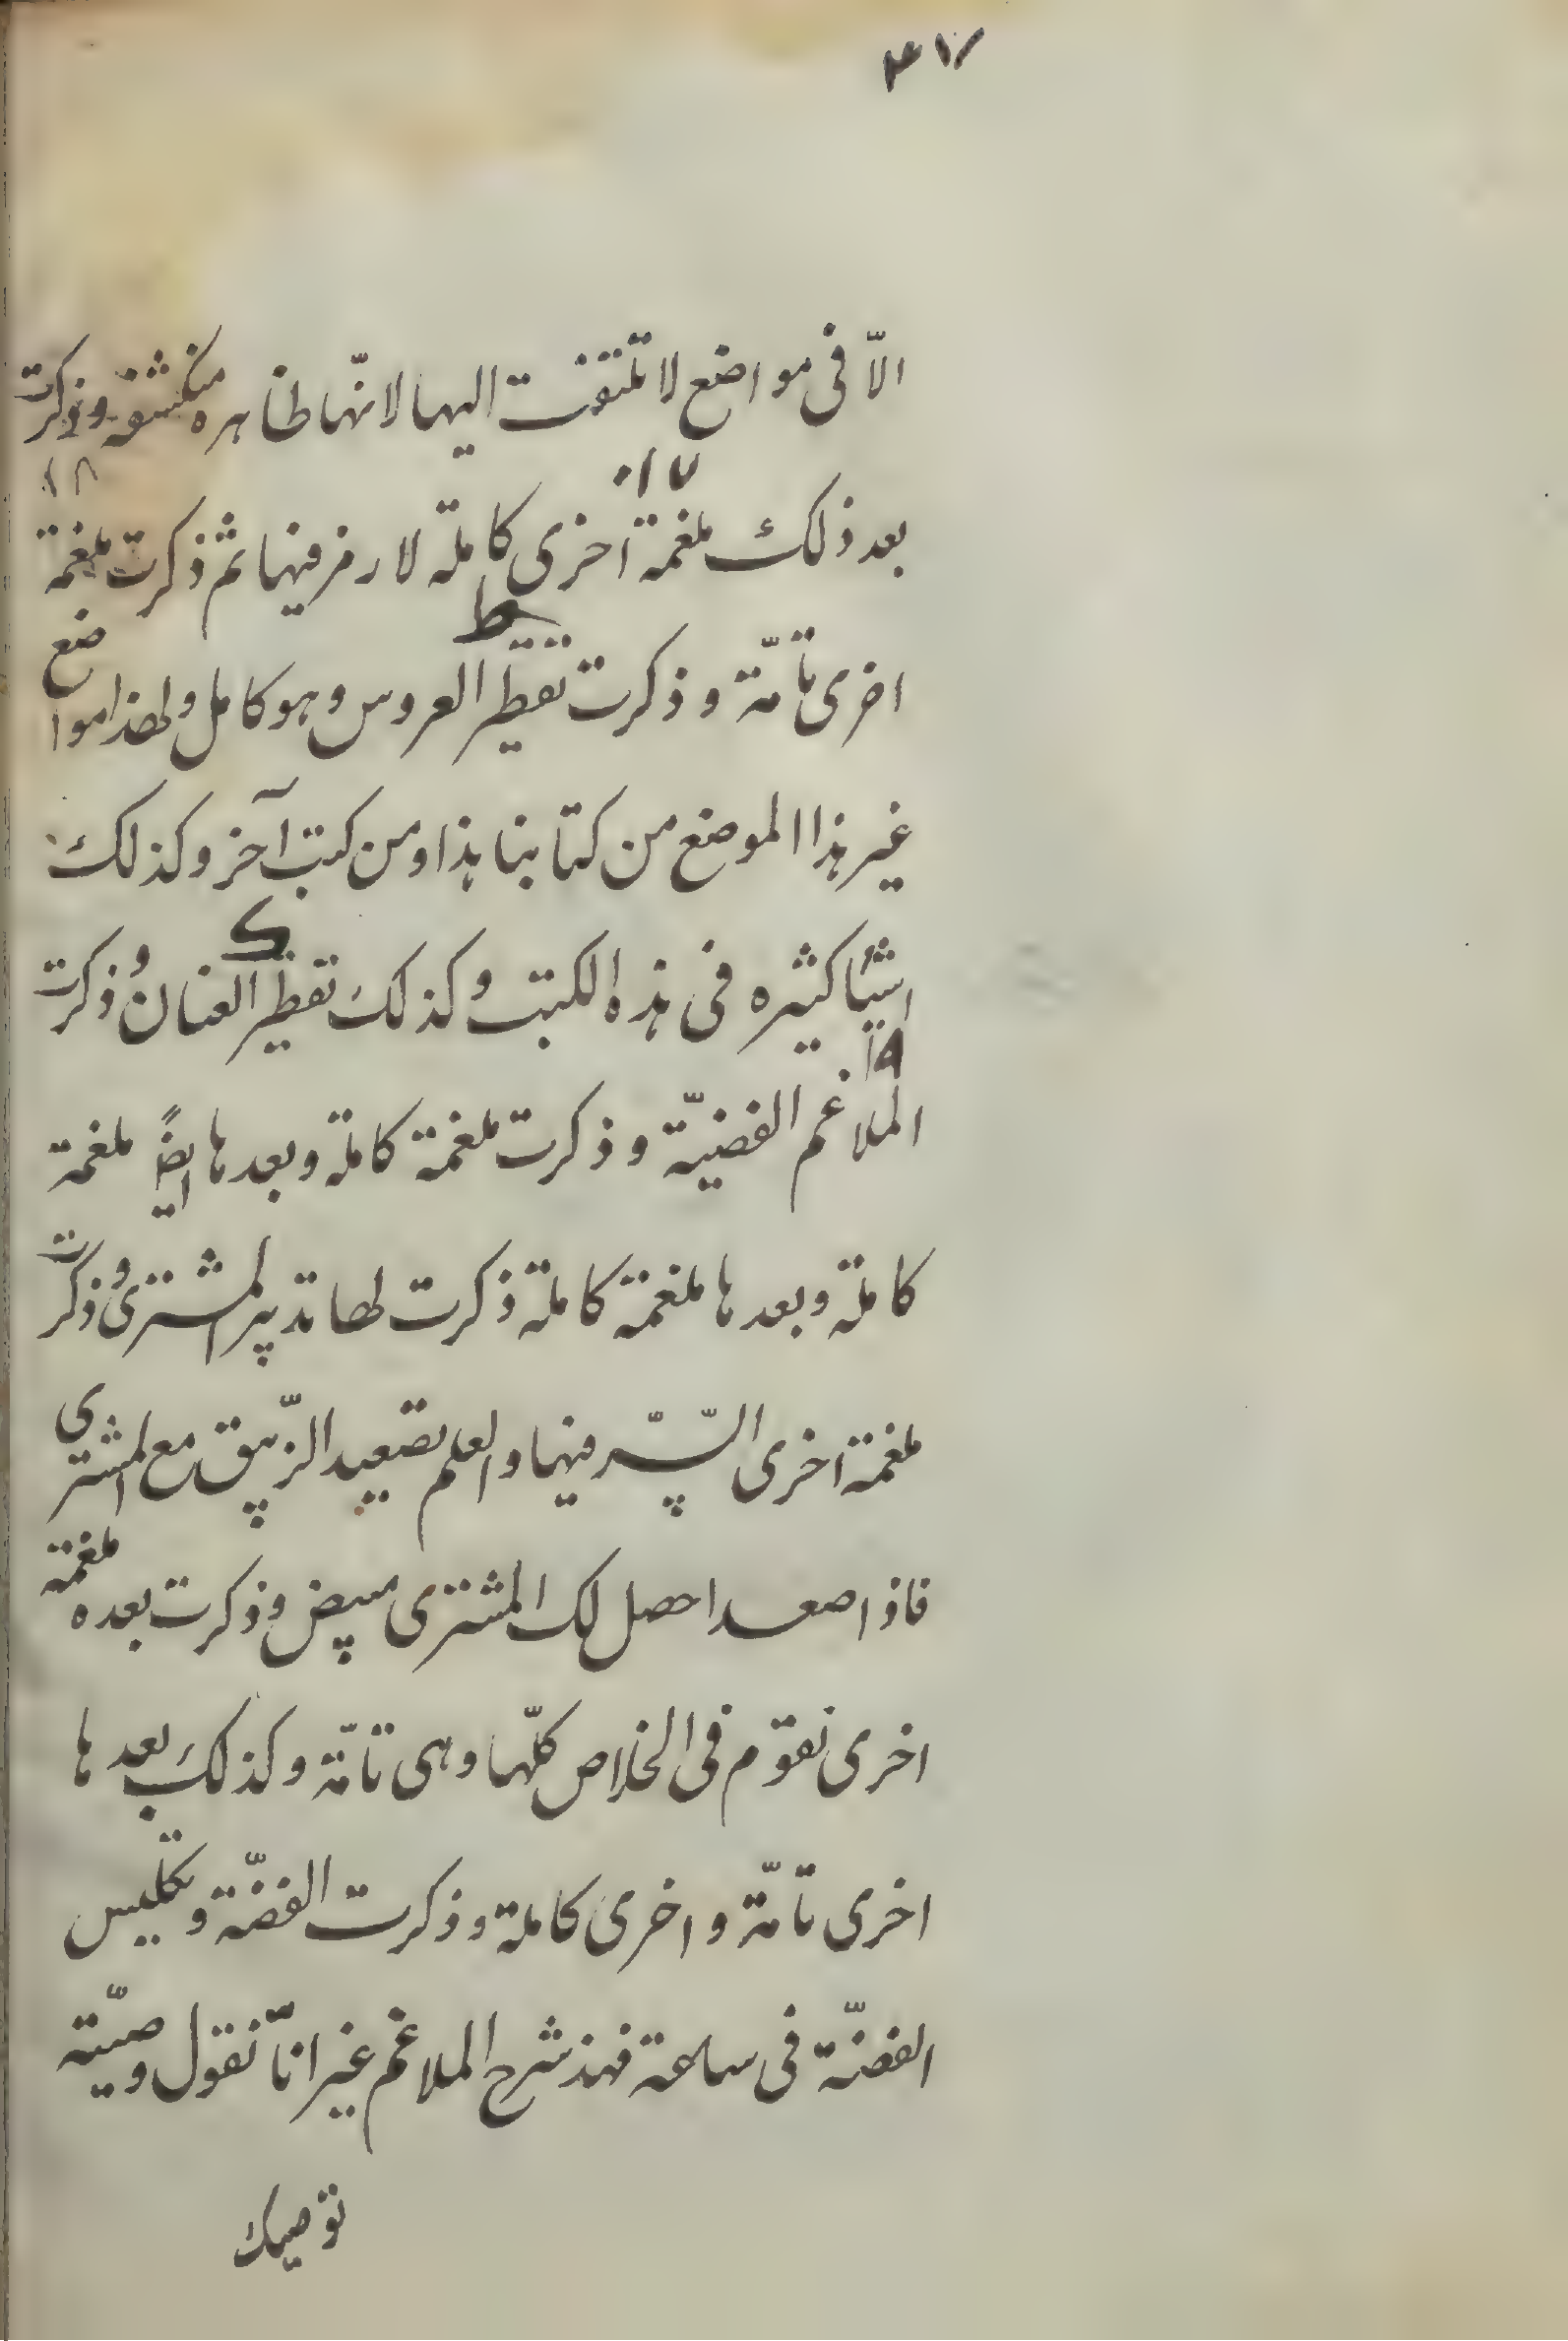 ٣٧
الّا فى مواضع لا تلتفت اليها لانّها ظاهره منكشفة وذكرت
١٧ ١٨
بعد ذلك ملغمة اخرى كاملة لا رمز فيها ثم ذكرت ملغمة
اخرى تامّة و ذكرت تقطير العروس وهو كامل ولهذا مواضع
غير هذا الموضع من كتابنا هذا ومن كتب آخر وكذلك
اشيئا كثيره فى هذه الكتب وكذلك تقطير العنان وذكرت
١٩
الملاغم الفضيّة و ذكرت ملغمة كاملة وبعدها ايضً ملغمة
كاملة وبعدها ملغمة كاملة ذكرت لها تدبير المشترى وذكرت
ملغمة اخرى السّر فيها والعلم تصعيد الزّيبق مع المشترى
فاذا صعد احصل لك المشترى مبيض وذكرت بعده ملغمة
اخرى تقوّم فى الخلاص كلّها وهى تامّة وكذلك بعدها
اخرى تامّة و اخرى كاملة وذكرت الفضّة وتكليس
الفضّة فى ساعة فهذ شرح الملاغم غير انّا نقول وصيّته
توصيك